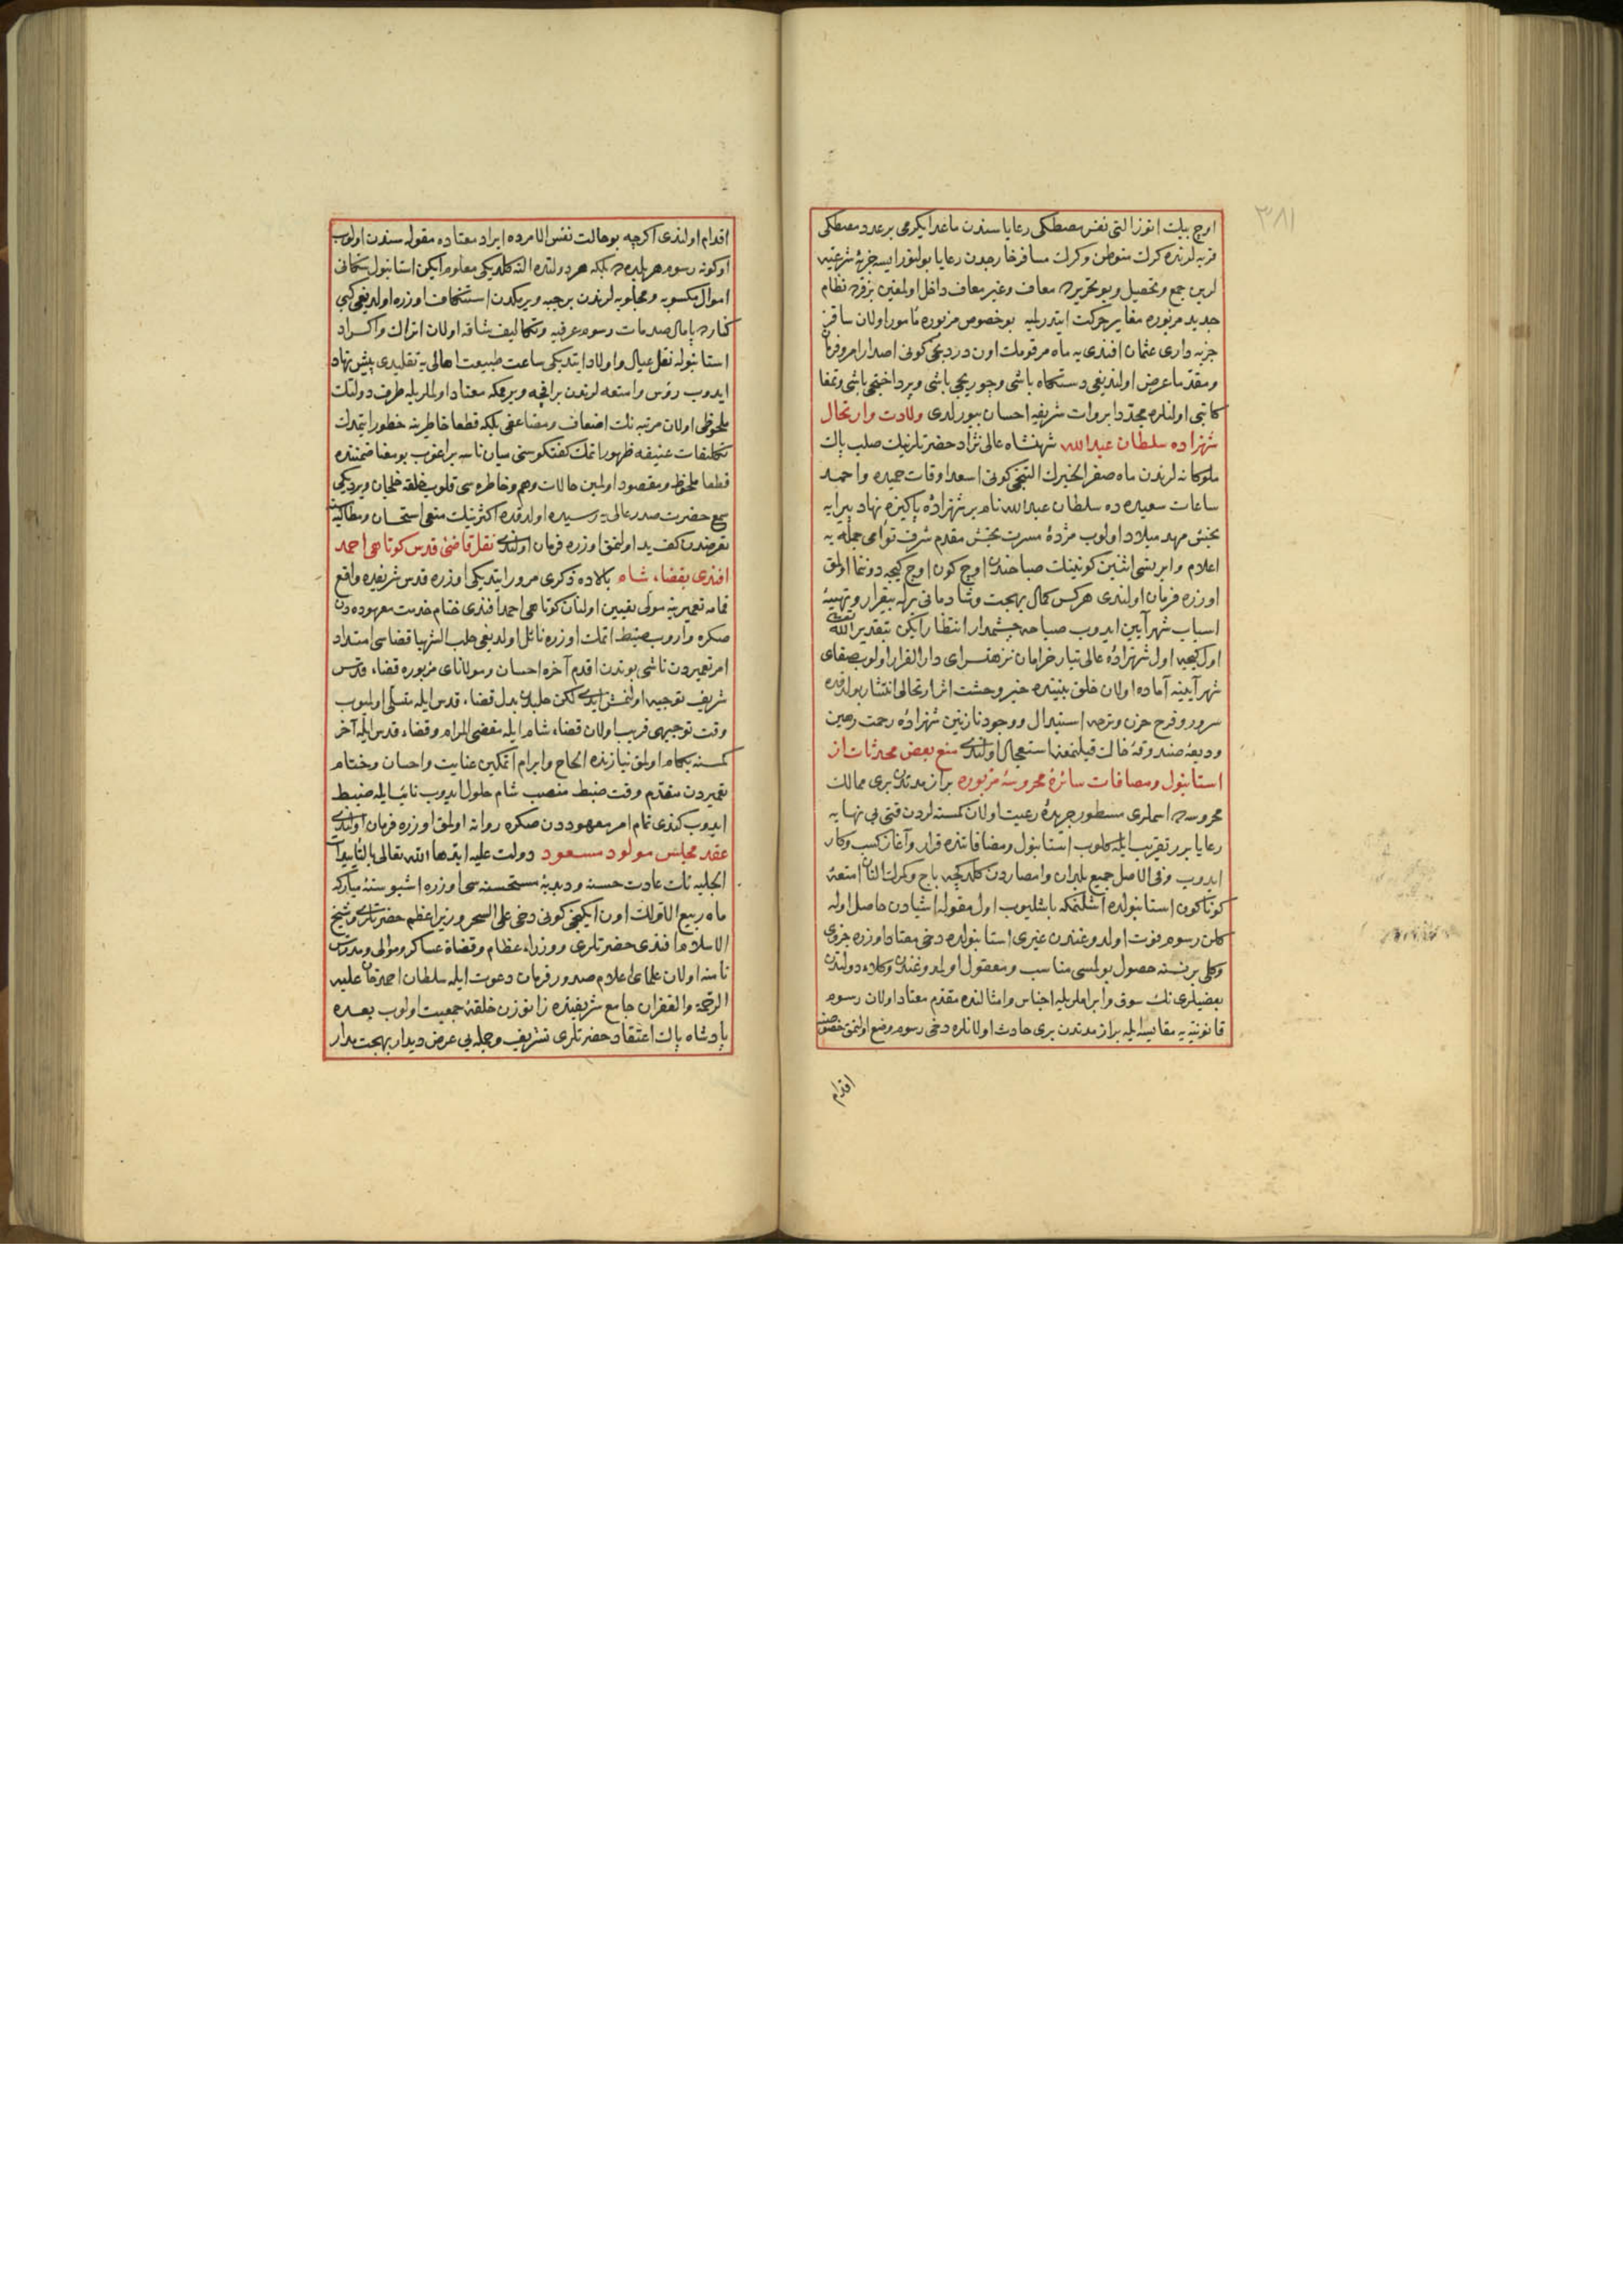 ٣٨١
اوچ بيك اتوز التى نفس مصطكى رعاياسندن ماعدا يكرمى بر عدد مصطكى
قريه لرنده كرك متوطن وكرك مسافر خارجدن رعايا بولنور ايسه جزيهٔ شرعيه
لرين جمع وتحصيل وبو تحريره معاف وغير معاف داخل اولمغين بر فرد نظام
جديد مزبوره مغاير حركت ايتدرلميه بو خصوص مزبوره مأمور اولان ساقز
جزيه دارى عثمان افندى يه ماه مرقومك اون دردنجى كونى اصدار امر وفرمان
ومقدما عرض اولنديغى دستكاه باشى وچوربجى باشى وپرداختجى باشى وتمغا
كاتبى اولنلره مجددا بروات شريفه احسان بيورلدى ولادت وارتحال
شهزاده سلطان عبدالله شهنشاه عالى نژاد حضرتلرينك صلب پاك
ملوكانه لرندن ماه صفر الخيرك التنجى كونى اسعد اوقات حميده واحمد
ساعات سعيده ده سلطان عبدالله نام بر شهزادهٔ پاكيزه نهاد پيرايه
بخش مهد ميلاد اولوب مژدهٔ مسرت بخش مقدم شرف توأمى جمله يه
اعلام وايرتسى اثنين كونينك صباحندن اوچ كون اوچ كيجه دوننما اولمق
اوزره فرمان اولندى هركس كمال بهجت وشادمانى يرله بيقرار وتهيئهٔ
اسباب شهر آيين ايدوب صباحه چشمدار انتظار ايكن بتقدير الله تعالى
اول كيجه اول شهزادهٔ عالى تبار خرامان نزهتسراى دار القرار اولوب صفاى
شهر آيينه آماده اولان خلق بيننده خبر وحشت اثر ارتحالى انتشار بولدقده
سرور وفرح حزن وترحه استبدال ووجود نازنين شهزادهٔ رحمت رهين
وديعهٔ صندوقهٔ خاك قيلنمغه استعجال اولندى منع بعض محدثات از
استانبول ومضافات سائرهٔ محروسهٔ مزبوره براز مدتدن برى ممالك
محروسه ده اسملرى مسطور جريدهٔ رعيت اولان كمسنه لردن قتى بى نهايه
رعايا برر تقريب ايله كلوب استانبول ومضافاتنده قرار وآغاز كسب وكار
ايدوب وفى الاصل جميع بلدان وامصاردن كلدكجه باج وكمرك النان امتعهٔ
كوناكون استانبولده اشلنمكه باشليوب اول مقوله اشيادن حاصل اوله
كلن رسوم فوت اولدوغندن غيرى استانبولده دخى معتاد اوزره جزوى
وكلى بر نسنه حصول بولمسى مناسب ومعقول اولدوغندن وكلاء دولتدن
بعضيلرى نك سوق وابراملريله اجناس وامثالنده مقدم معتاد اولان رسوم
قانونيه يه مقايسه ايله براز مدتدن برى حادث اولانلره دخى رسوم وضع اولنمق خصوصنه
اقدام
اقدام اولندى اكرچه بو حالت نفس الامرده ايراد معتاده مقوله سندن اولوب
اوكونه رسوم هر بلده ده بلكه هر دولتده النه كلديكى معلوم ايكن استانبول سكانى
اموال مكسوبه ومجلوبه لرندن بر حبه ويريكدن استنكاف اوزره اولديغى كبى
كناره پامال صدمات رسوم عرفيه وتكاليف شاقه اولان اتراك واكراد
استانبوله نقل عيال واولاد ايتديكى ساعت طبيعت اهالى يه تقليدى پيش نهاد
ايدوب رؤس وامتعه لرندن بر اقچه ويرمكه معتاد اولملريله طرف دولتك
ملحوظى اولان مرتبه نك اضعاف ومضاعفى بلكه قطعا خاطرينه خطور ايتمدك
تكليفات عنيفه ظهور اتمك كفتكوسنى ميان ناسه براغوب بو معنا ضمننده
قطعا ملحوظ ومقصود اولمين حالات وهم وخاطره سى قلوب خلقه خلجان ويرديكى
سمع حضرت صدر عالى يه رسيده اولدقده اكثرينك منعى استحسان ومطالبه
تعرضندن كف يد اولنمق اوزره فرمان اولندى نقل قاضئ قدس كوتاهى احمد
افندى بقضاء شام بالاده ذكرى مرور ايتديكى اوزره قدس شريفده واقع
قمامه تعميرينه مولى تعيين اولنان كوتاهى احمد افندى ختام خدمت معهوده دن
صكره واروب ضبط اتمك اوزره نائل اولديغى حلب الشهبا قضاسى امتداد
امر تعميردن ناشى بوندن اقدم آخره احسان ومولاناى مزبوره قضاء قدس
شريف توجيه اولنمش ايدى لكن حلبدن بدل قضاء قدس ايله متسلى اولميوب
وقت توجيهى قريب اولان قضاء شام ايله مقضى المرام وقضاء قدس ايله آخر
كمسنه بكام اولمق نيازنده الحاح وابرام اتمكين عنايت واحسان وختام
تعميردن مقدم وقت ضبط منصب شام حلول ايدوب نائبيله ضبط
ايدوب كندى تمام امر معهوددن صكره روانه اولمق اوزره فرمان اولندى
عقد مجلس مولود مسعود دولت عليه ابدها الله تعالى بالتأييدات
الجليه نك عادت حسنه وديدنهٔ مستحسنه سى اوزره اشبو سنهٔ مباركه
ماه ربيع الاولك اون ايكنجى كونى دخى على السحر وزير اعظم حضرتلرى وشيخ
الاسلام افندى حضرتلرى ووزراء عظام وقضاة عساكر وموالى ومدرس
نامنه اولان علماى اعلام صدور فرمان دعوت ايله سلطان احمد خان عليه
الرحمة والغفران جامع شريفنده زانوزن حلقهٔ جمعيت اولوب بعده
پادشاه پاك اعتقاد حضرتلرى تشريف وجمله يى عرض ديدار بهجت مدار